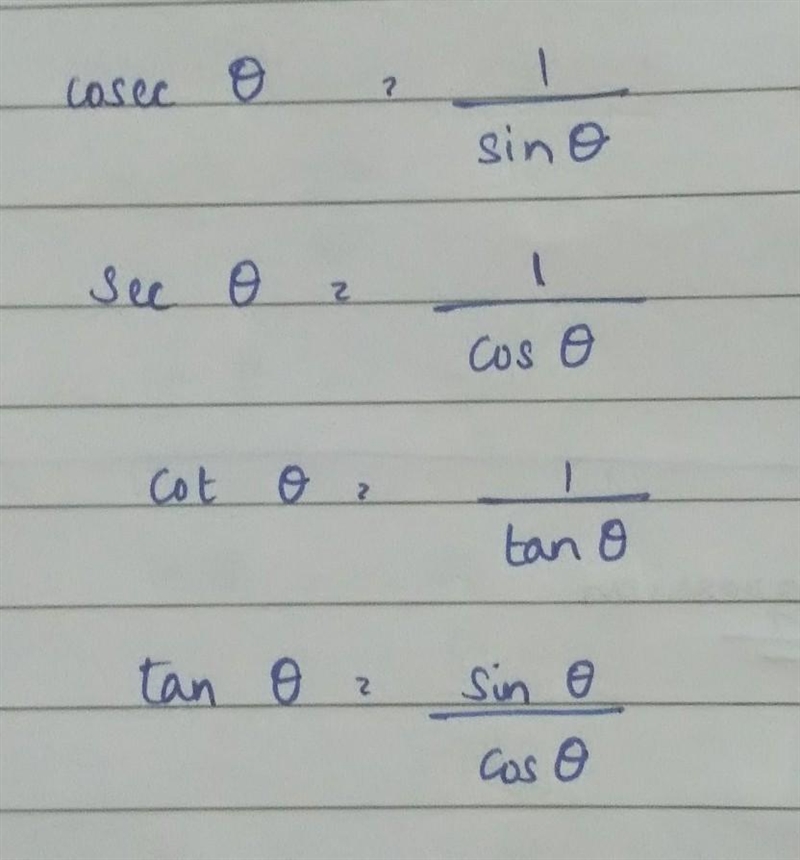 cosec θ = 1/sin θ
sec θ = 1/cos θ
cot θ = 1/tan θ
tan θ = sin θ/cos θ